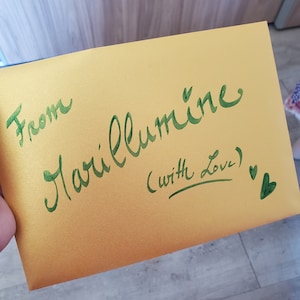 From
Marillumine
(with Love)